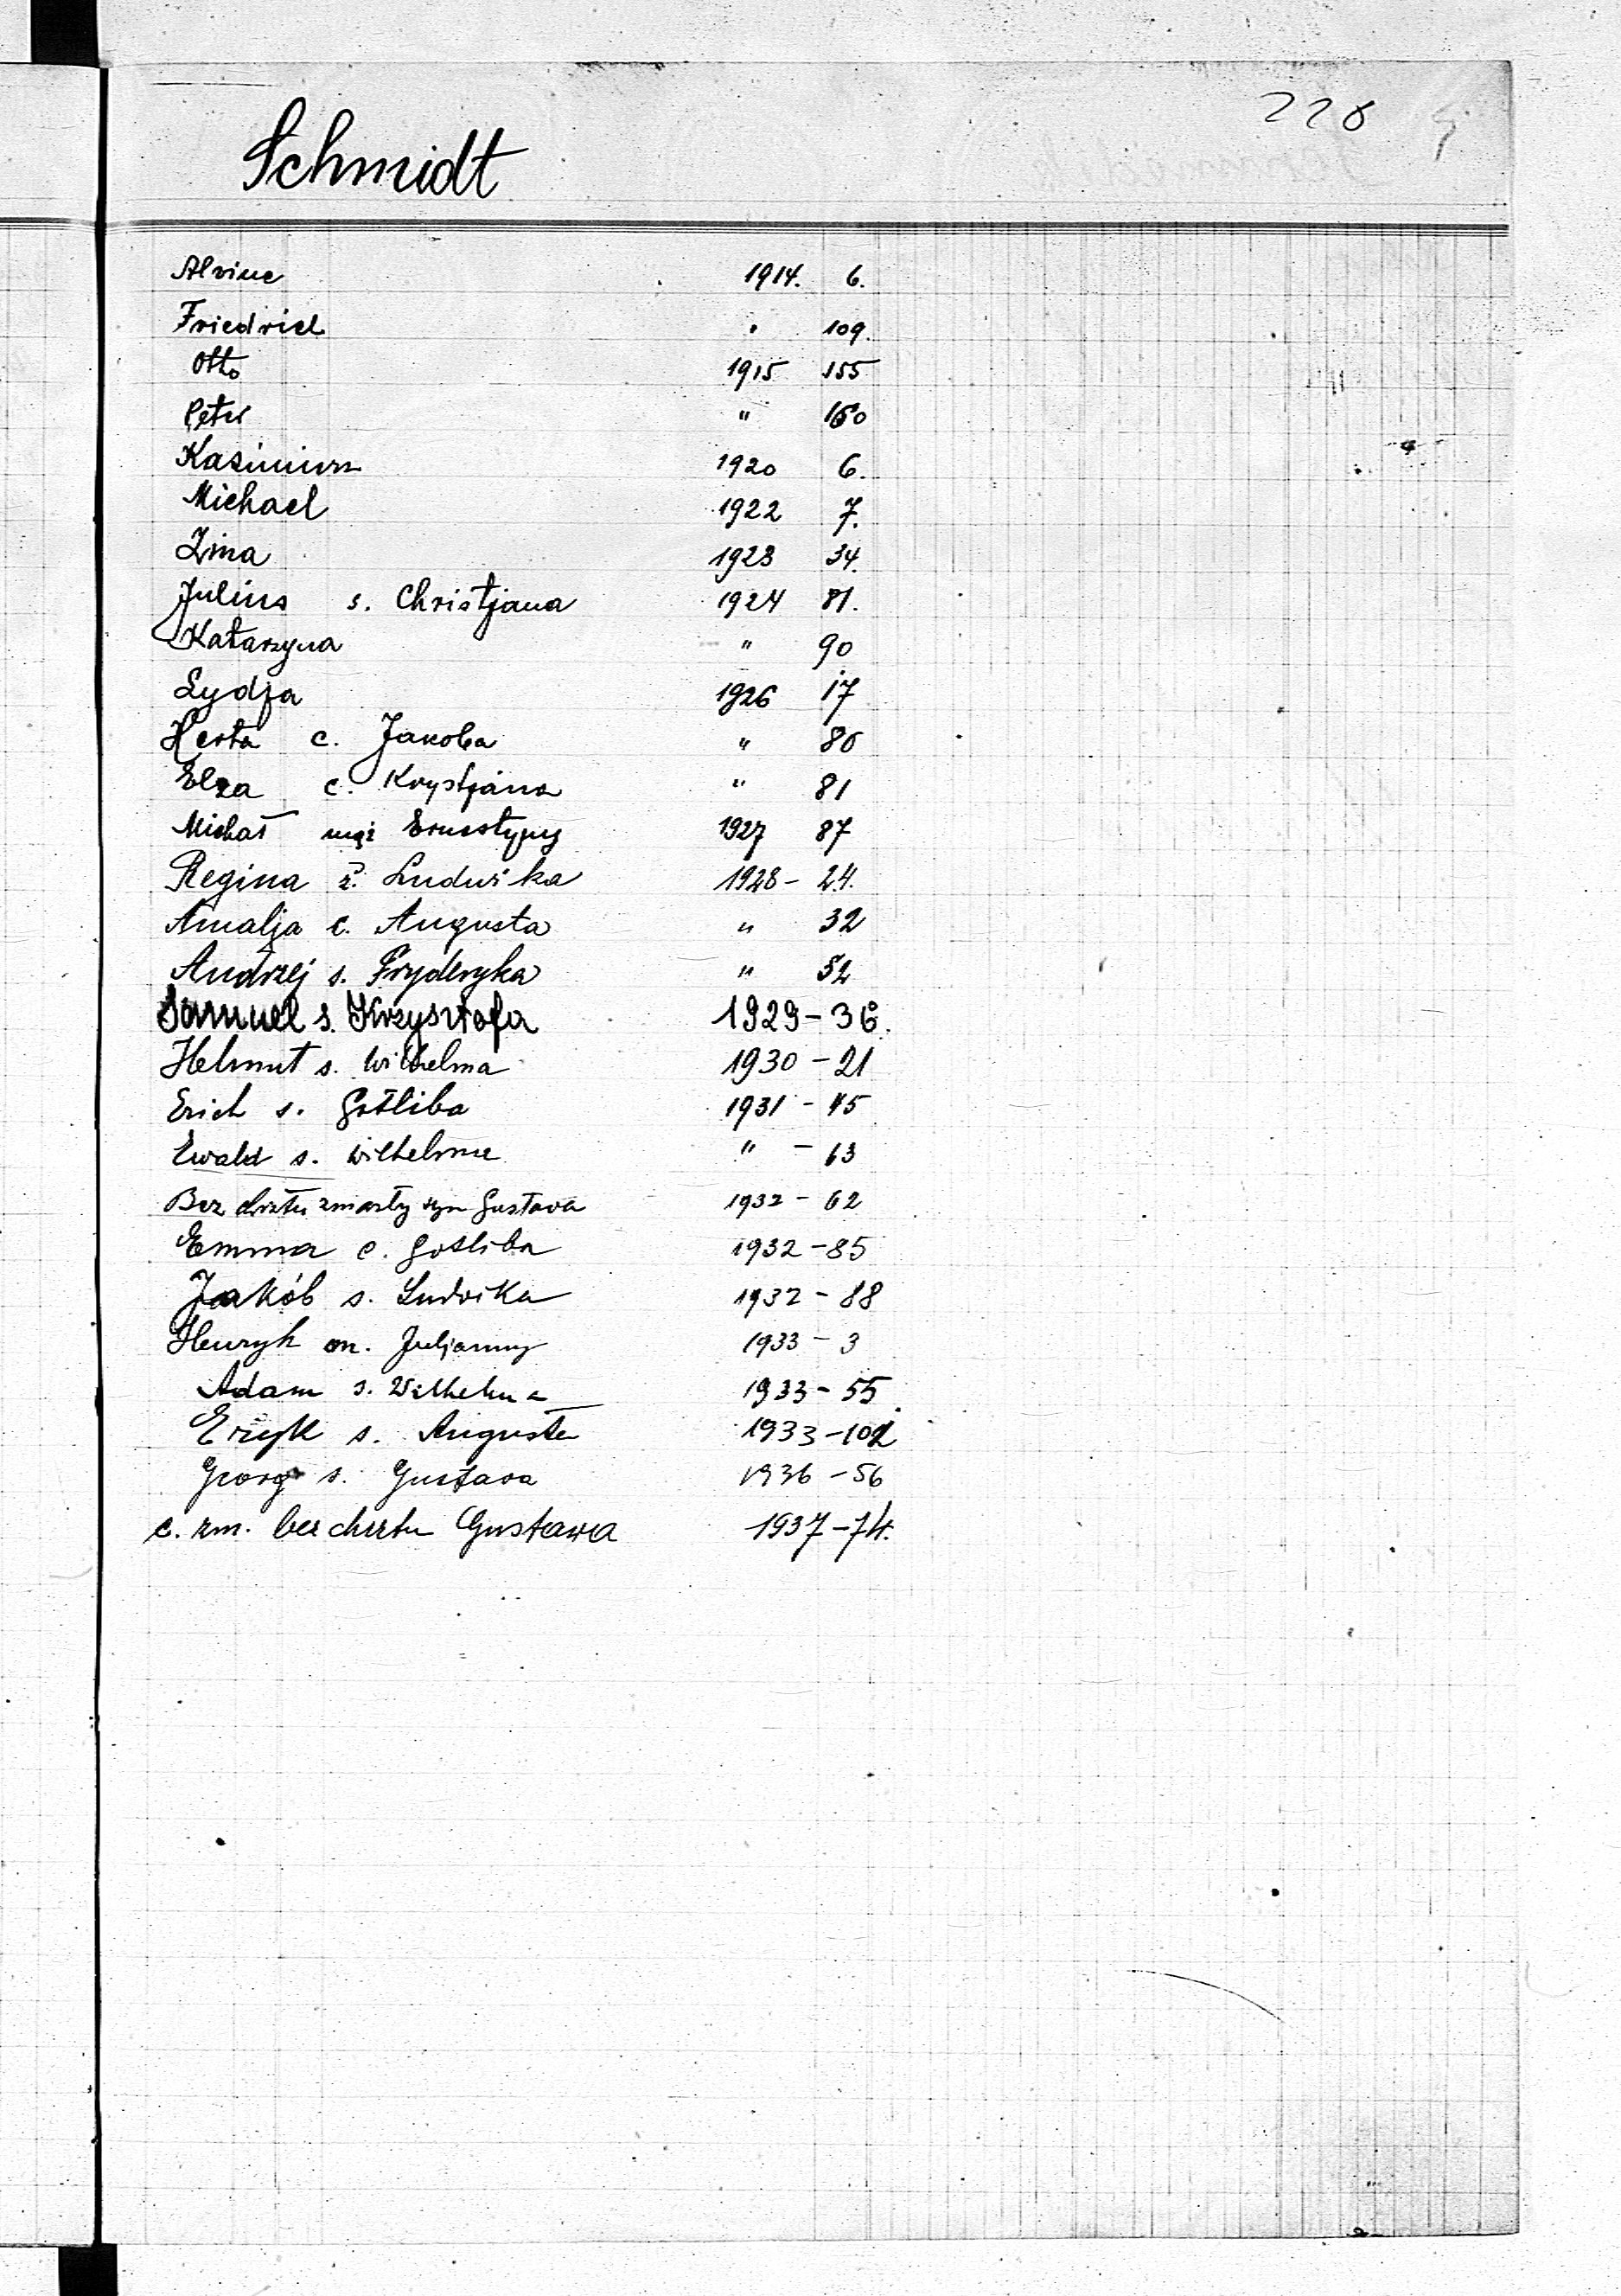 228
Schmidt
Alvine 1914. 6.
Friedrich " 109.
Otto 1915 155
Peter " 160
Kasimierz 1920 6.
Michael 1922 7.
Zina 1923 34.
Julius s. Christjana 1924 81.
Katarzyna " 90
Lydja 1926 17
Herta c. Jakoba " 80
Elza c. Krystjana " 81
Michał mąż Ernestyny 1927 87
Regina ż. Ludwika 1928 - 24.
Amalja c. Augusta " 32
Andrzej s. Fryderyka " 52
Samuel s. Krzysztofa 1929 - 36.
Helmut s. Wilhelma 1930 - 21
Erich s. Gottliba 1931 - 45
Ewald s. Wilhelma " - 63
Bez chrztu zmarły syn Gustava 1932 - 62
Emma c. Gottliba 1932 - 85
Jakób s. Ludvika 1932 - 88
Henryk m. Juljanny 1933 - 3
Adam s. Wilhelma 1933 - 55
Eryk s. Augusta 1933 - 102
Georg s. Gustava 1936 - 56
c. zm. bez chrztu Gustawa 1937 - 74.